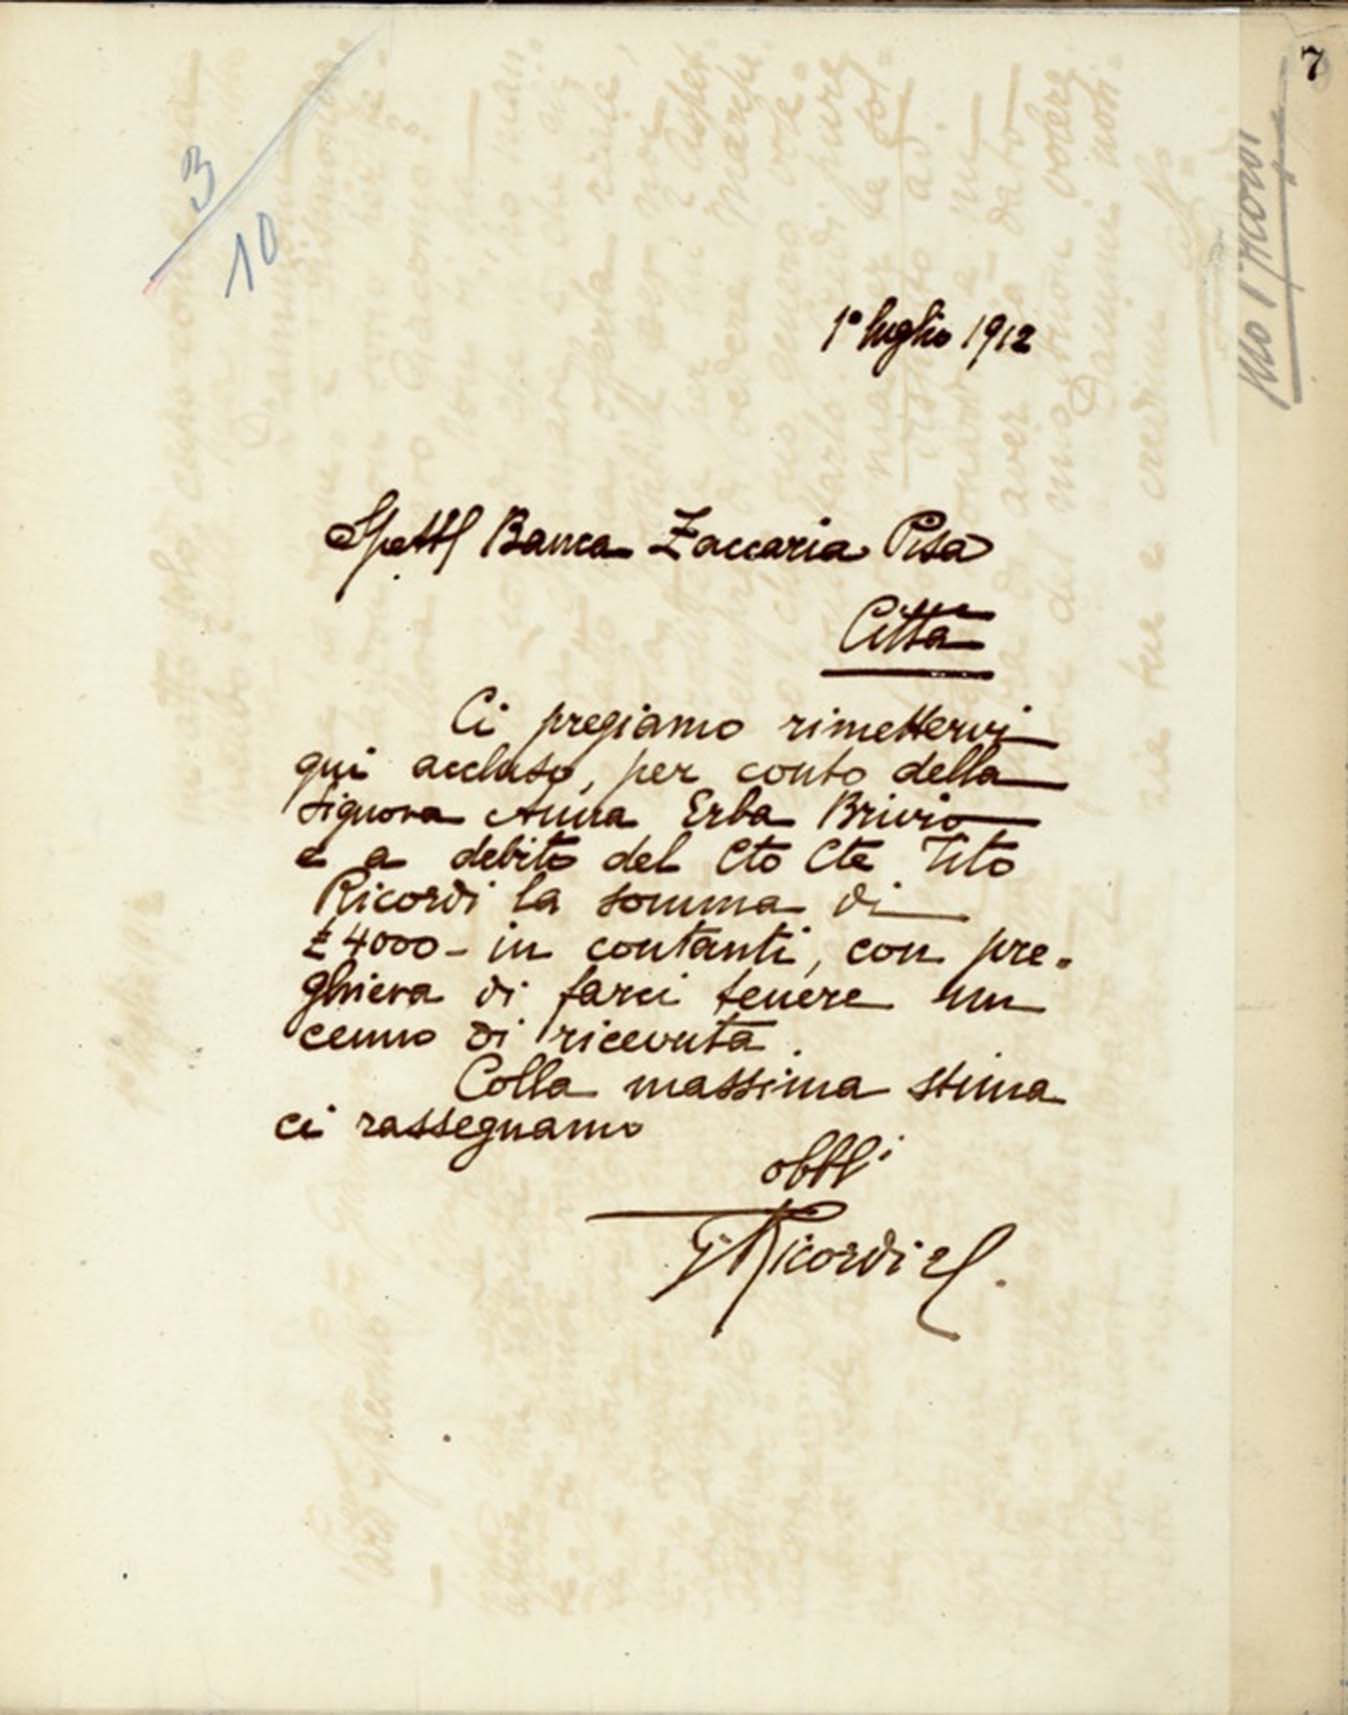 7
3/10
1° luglio 1912
Spettl Banca Zaccaria Pisa
Città
Ci pregiamo rimettervi
qui accluso, per conto della
Signora Anna Erba Brivio
e a debito del Cto Cte Tito
Ricordi la somma di
£ 4000 - in contanti, con pre=
ghiera di farci tenere un
cenno di ricevuta.
Colla massima stima
ci rassegnamo
obbl.i
G Ricordi e C.